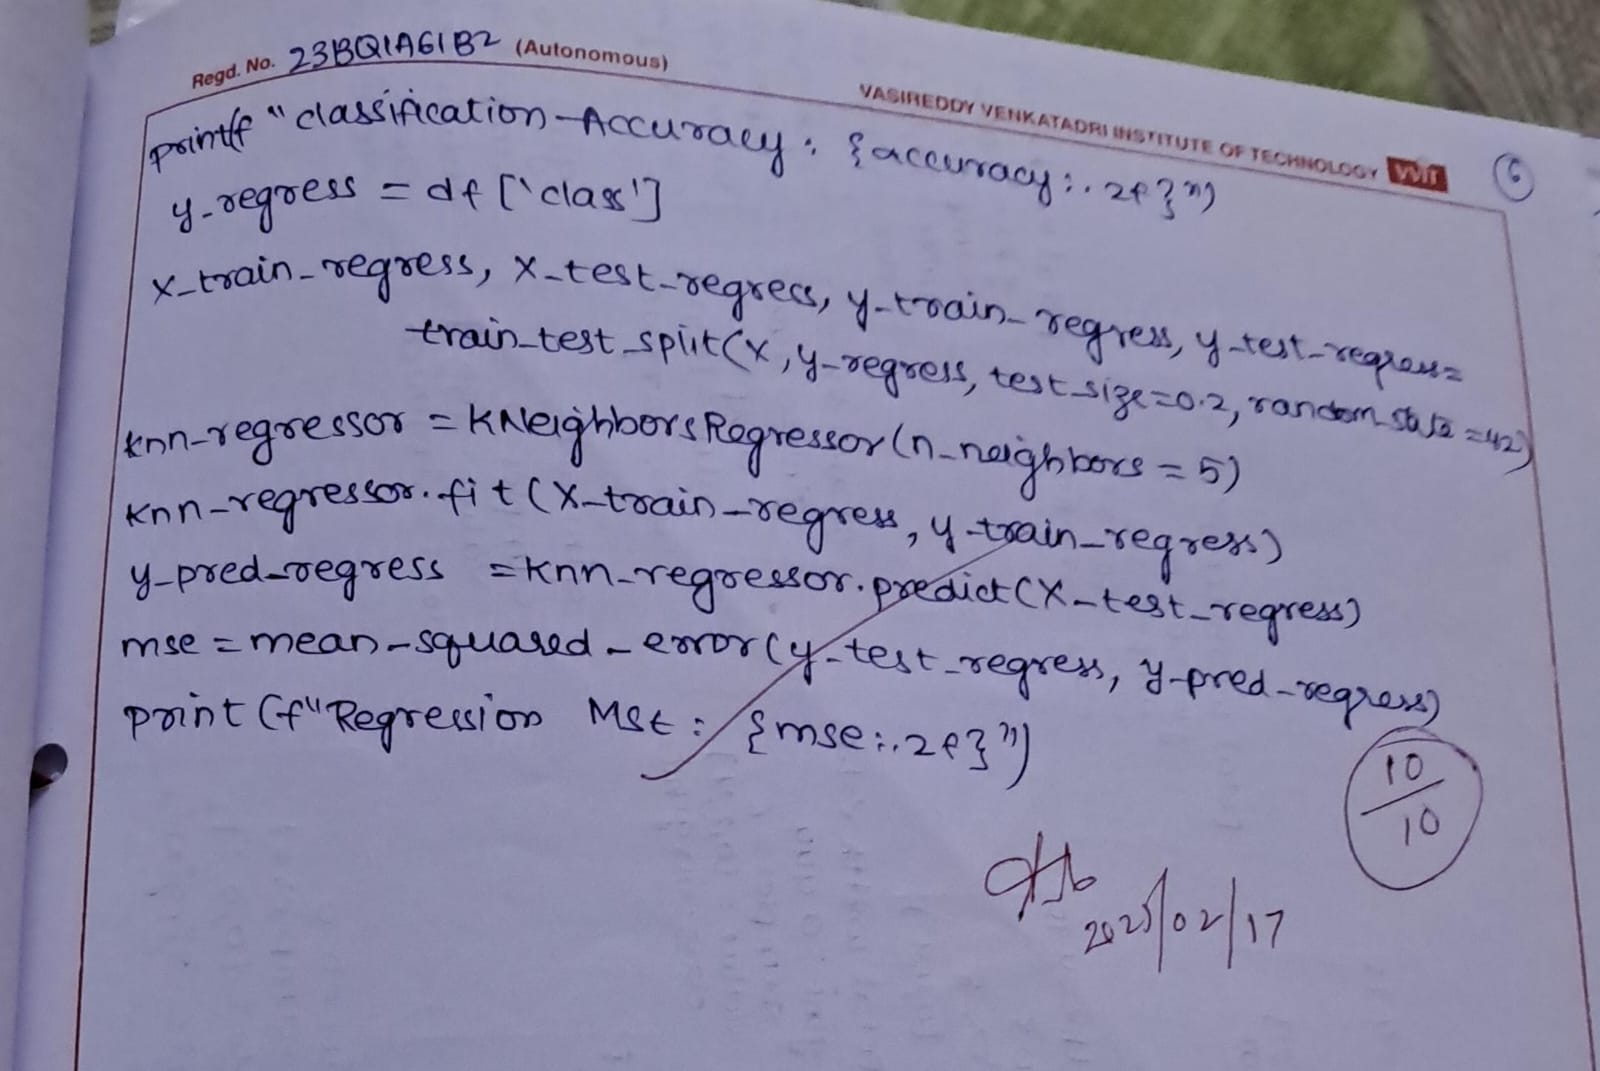 Regd. No. 23BQ1A61B2 (Autonomous)
VASIREDDY VENKATADRI INSTITUTE OF TECHNOLOGY VVIT
6
printf "classification-Accuracy: {accuracy:.2f}")
y_regress = df['class']
X_train_regress, X_test_regress, y_train_regress, y_test_regress=
train_test_split(X, y_regress, test_size=0.2, random_state=42)
knn_regressor = KNeighborsRegressor(n_neighbors = 5)
knn_regressor.fit(X_train_regress, y_train_regress)
y_pred_regress = knn_regressor.predict(X_test_regress)
mse = mean_squared_error(y_test_regress, y_pred_regress)
print(f"Regression MSE: {mse:.2f}")
10
10
2025/02/17